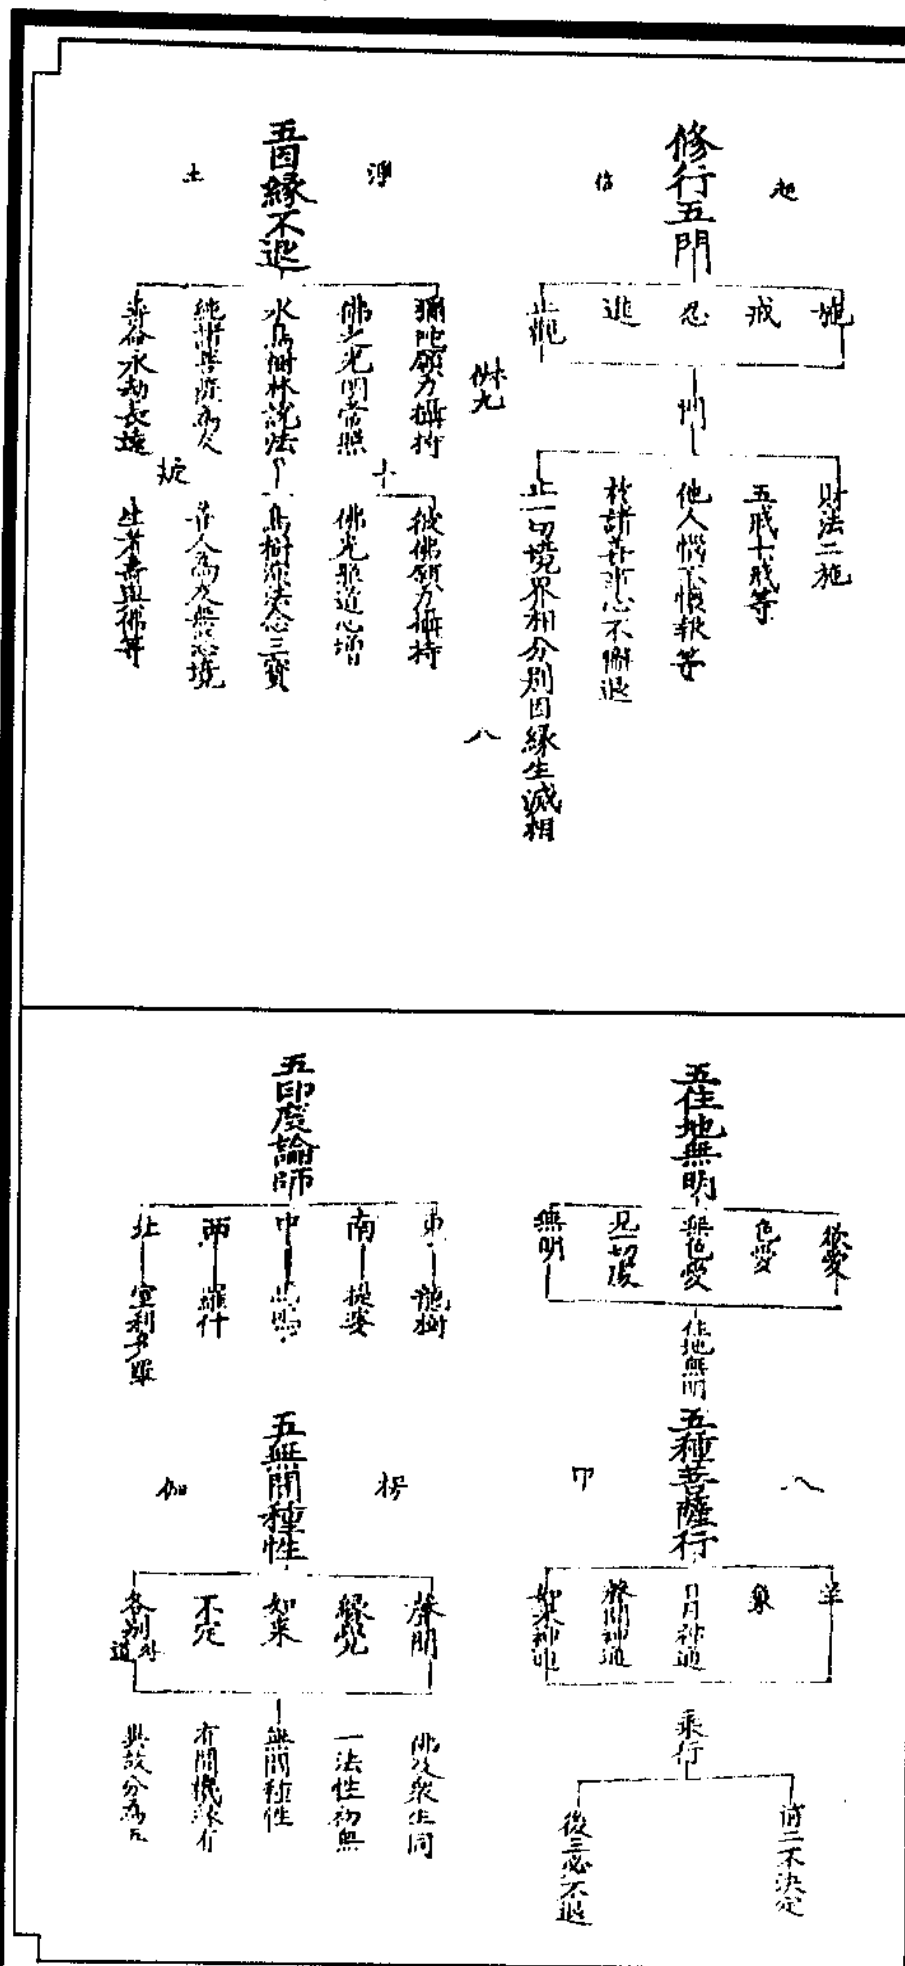 起信
修行五門
施
戒
忍
進
止觀
門
財法二施
五戒十戒等
他人惱不懷報等
於諸善事心不懈退
止一切境界相分別因緣生滅相
八
淨土
五因緣不退
彌陀願力攝持
佛之光明常照
水鳥樹林說法
純諸菩薩為友
壽命永劫長遠
十疑
彼佛願力攝持
佛光照道心增
鳥樹演法念三寶
善人為友無惡境
生者壽與佛等
五住地無明
欲愛
色愛
無色愛
見一切處
無明
住地無明
五種菩薩行
羊
象
日月神通
聲聞神通
如來神通
乘行
前二不決定
後三必不退
五印度論師
東 龍樹
南 提婆
中 馬鳴
西 羅什
北 室利多羅
楞伽
五無間種性
聲聞
緣覺
如來
不定
各別外道
佛及衆生同
一法性初無
無間種性
有間機殊行
異故分為五